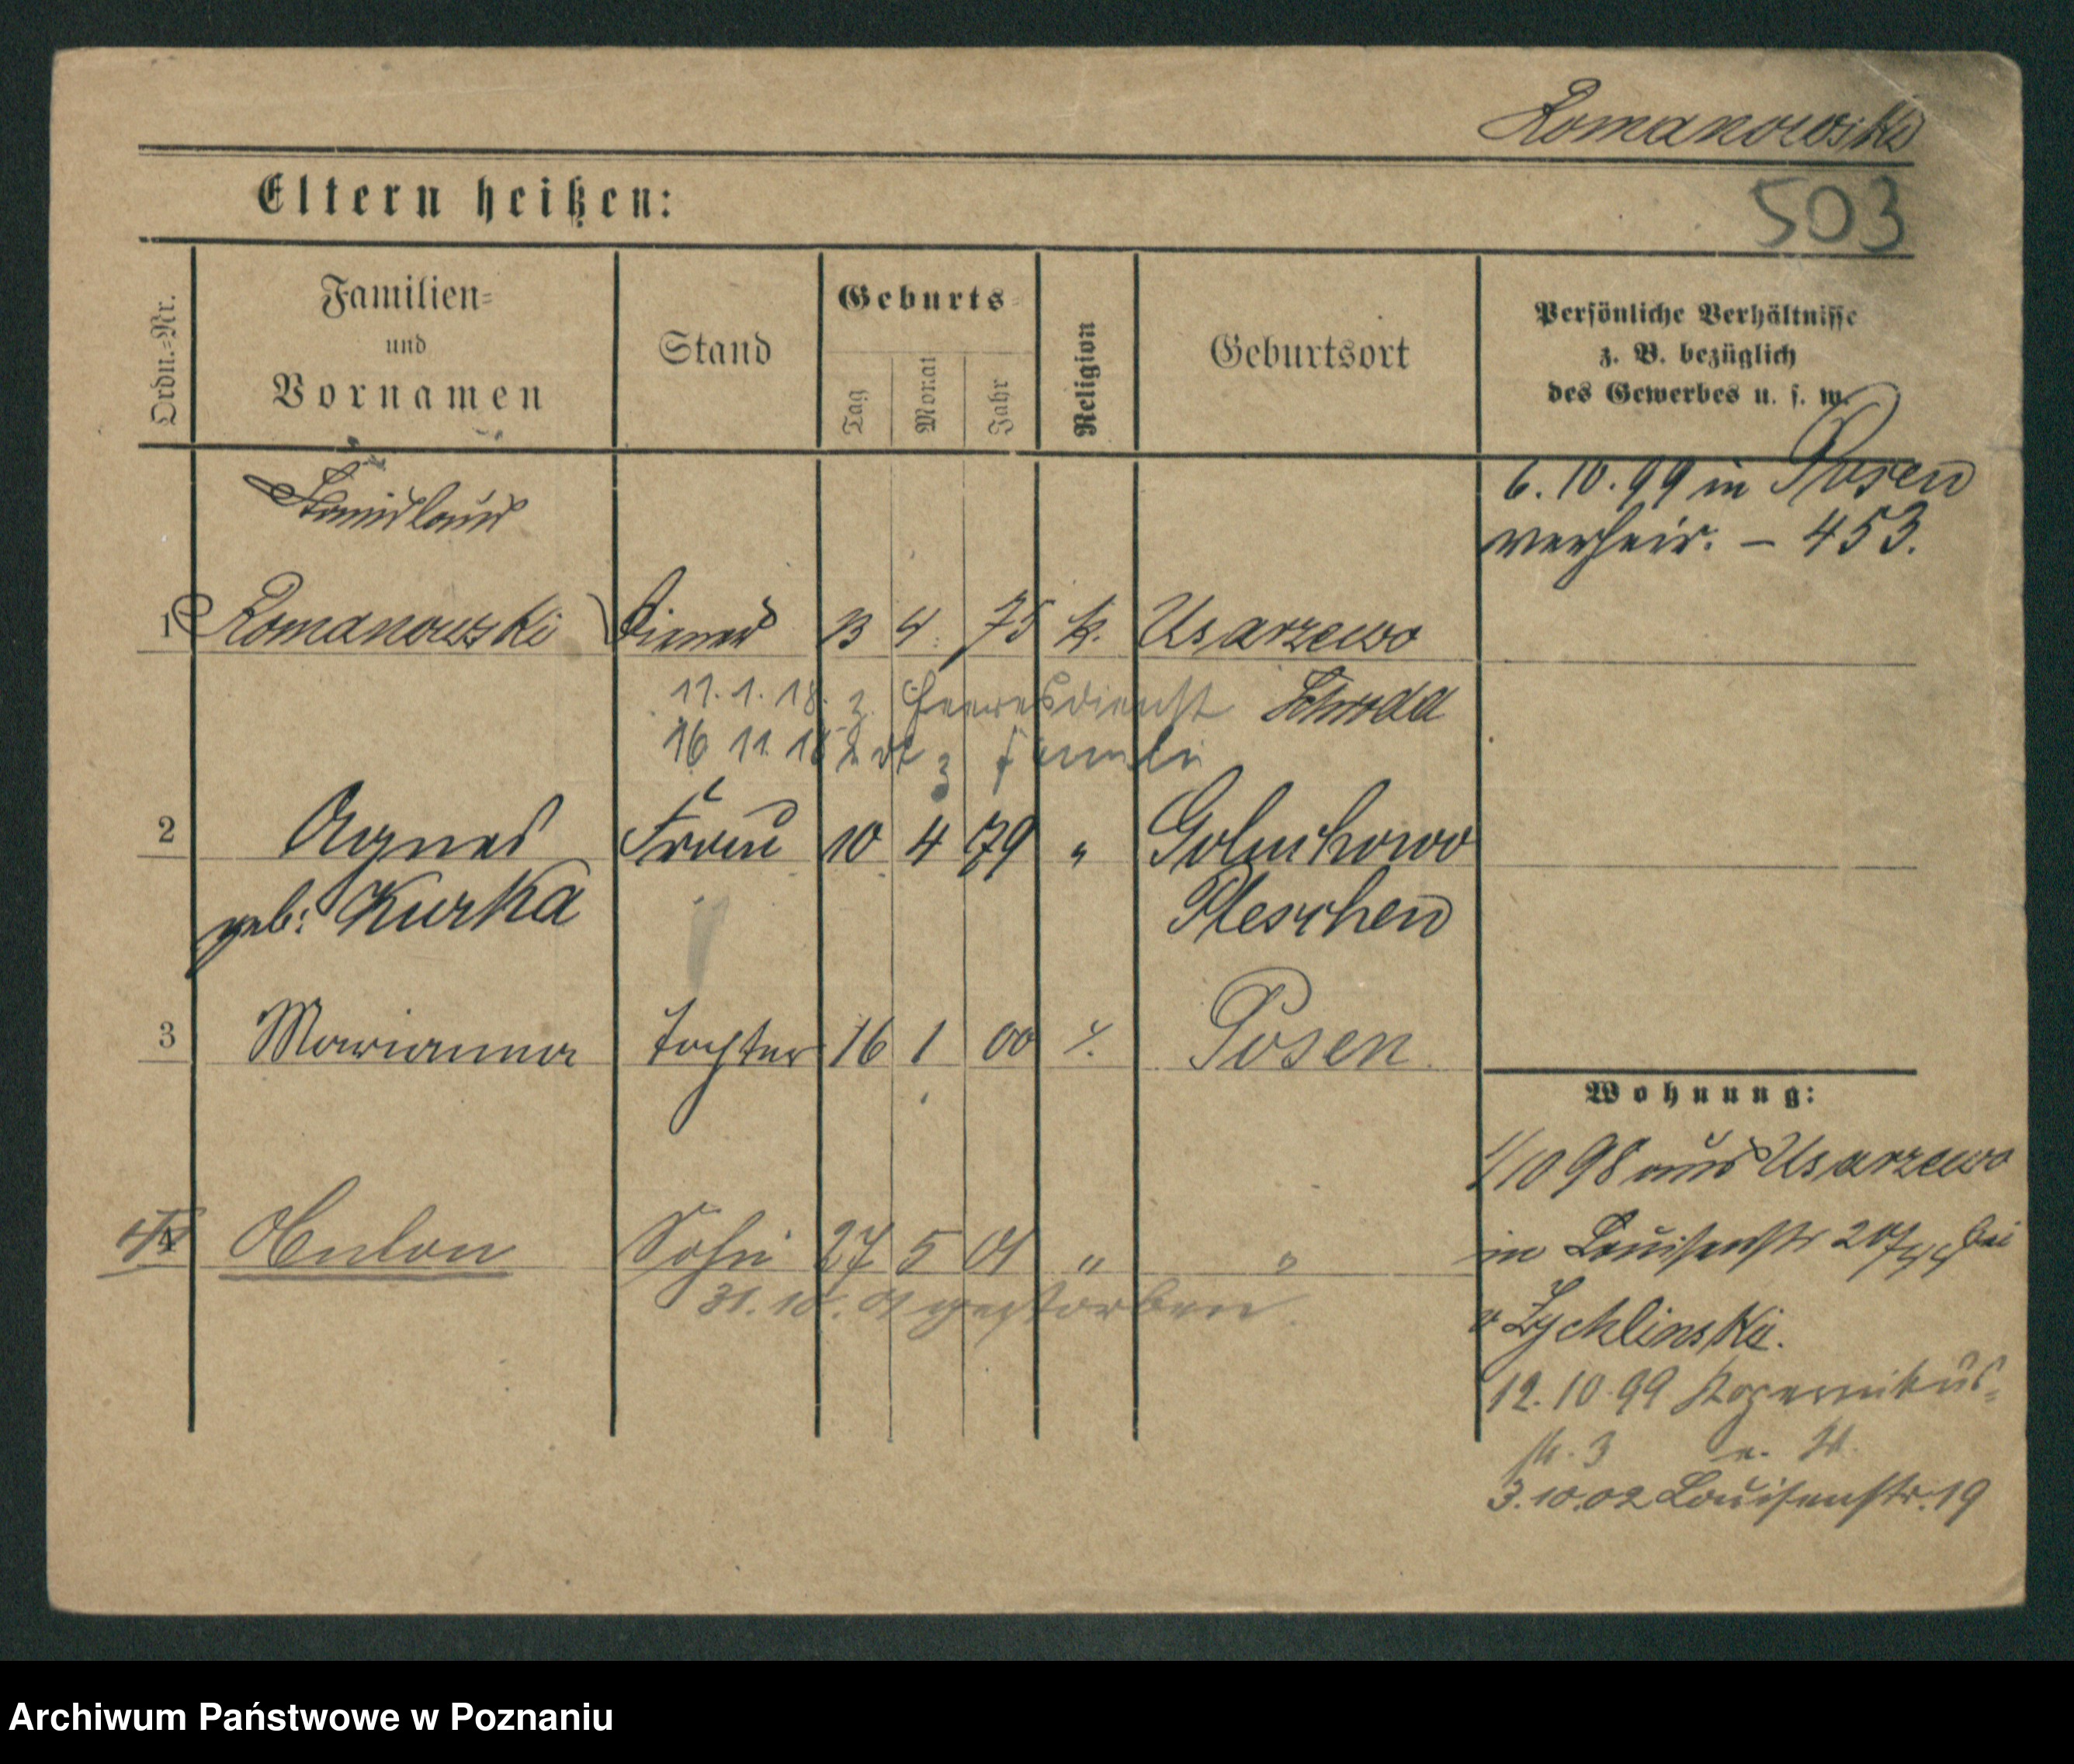 Romanowski
Eltern heißen:
503
Ordn.-Nr.
Familien-
und
Vornamen
Stand
Geburts-
Tag
Monat
Jahr
Religion
Geburtsort
Persönliche Verhältnisse
z. B. bezüglich
des Gewerbes u. s. w.
6.10.99 in Posen
verheir. – 453.
Stanislaus
1 Romanowski Diener 23 4. 75 k. Usarzewo
11.1.18. z. Heeresdienst Schroda
16 11 18
2 Agnes Frau 10 4 79 " Goluchowo
geb: Kurka Pleschen
3 Marianna Tochter 16 1 00 Posen.
Wohnung:
1/10 98 aus Usarzewo
in Louisenstr 20 bei
v Zychlinski.
4 Anton Sohn 27 5 01 " "
31.10.01 gestorben.
12.10.99 Kopernikus-
str. 3
3.10.02 Louisenstr. 19
Archiwum Państwowe w Poznaniu